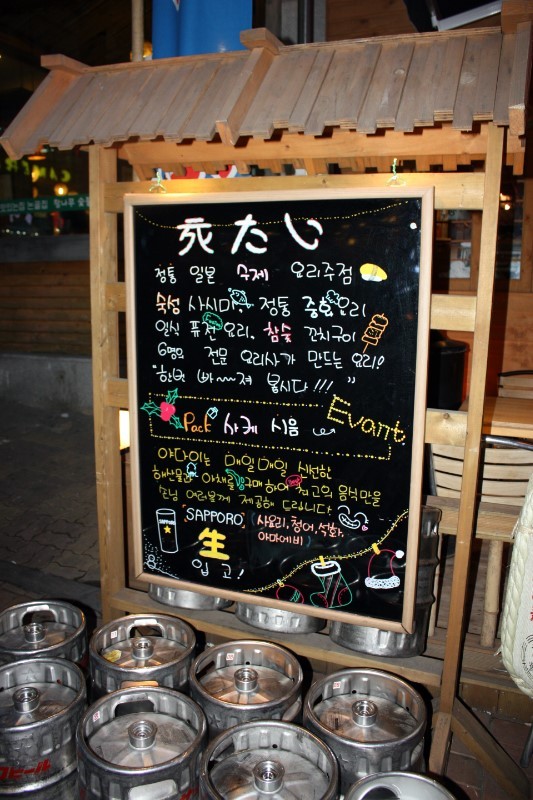 정통 일본 수제 요리주점
숙성 사시미, 정통 중화요리
일식 퓨전 요리, 참숯 꼬치구이
6명의 전문 요리사가 만드는 요리!
"한번 빠~~져 봅시다!!!"
Pack 사케 시음
Evant
아다이는 매일매일 신선한
해산물과 야채를 구매하여 최고의 음식만을
손님 여러분께 제공해 드립니다
SAPPORO
SAPPORO
生
입고!
사요리, 청어, 석화,
아마에비